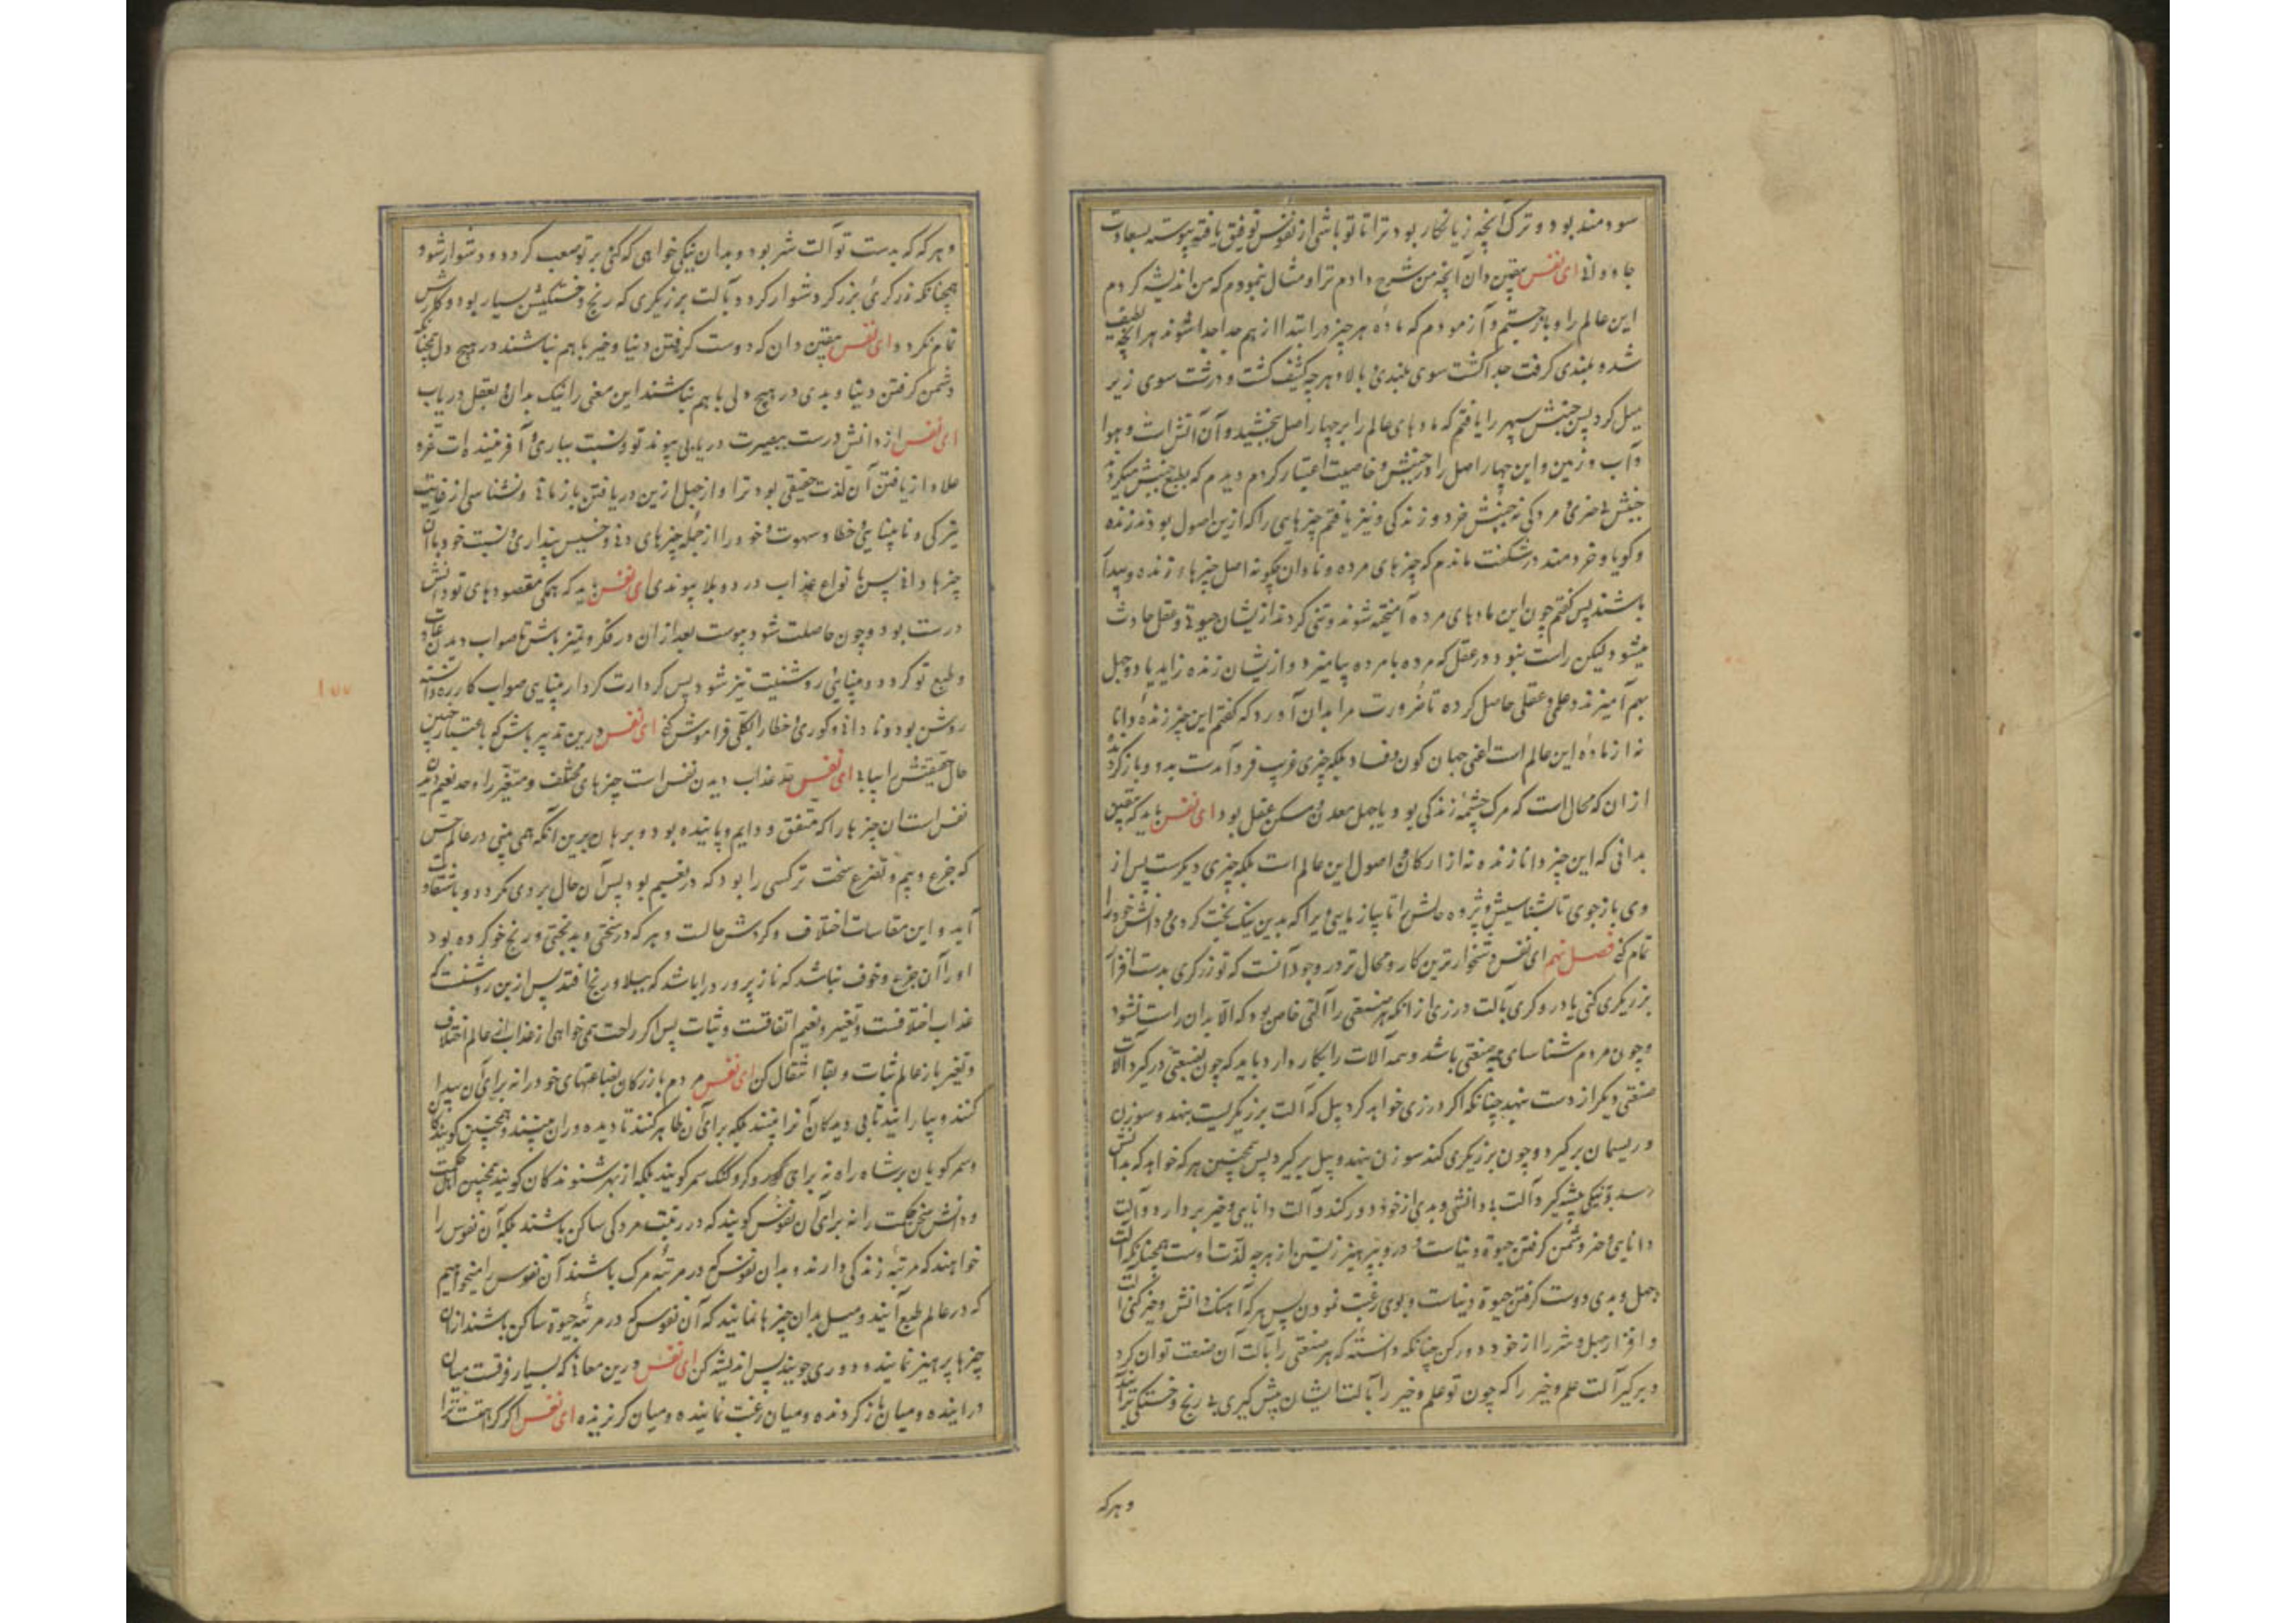 سودمند بود و ترک آنچه زیانکار بود ترا تا تو باشی از نفوس توفیق یافته پیوسته بسعادت
جاودانی ای نفس یقین دان آنچه من شرح دادم ترا و مثال نمودم که من اندیشه کردم
این عالم را و بازجستم و آزمودم که ماده هر چیز در ابتدا از هم جدا جدا شوند هر آنچه لطیف
شد و بلندی کرفت جدا کشت سوی بلندی و بالا و هر چه کثیف کشت و درشت سوی زیر
میل کرد پس جنبش سپهر را یافتم که مادهای عالم را بر چهار اصل بخشید و آن آتش است و هوا
و آب و زمین و این چهار اصل را در جنبش و خاصیت اعتبار کردم دیدم که بطبع جنبش میکردند
جنبش بی خبری و مردکی نه جنبش خرد و زندکی و نیز یافتم چیزهایی را که ازین اصول بودند زنده
و کویا و خردمند در شکفت ماندم که چیزهای مرده و نادان چکونه اصل چیزهاء زنده و بیدار
باشند پس کفتم چون این مادهای مرده آمیخته شوند و تنی کردند از یشان حیوة و عقل حادث
میشود لیکن راست نبود در عقل که مرده با مرده بیامیزد و از یشان زنده زاید یا دو جهل
بهم آمیزند و علمی و عقلی حاصل کرده تا ضرورت مرا بدان آورد که کفتم این چیز زنده دانا
نه از ماده این عالم است اعنی جهان کون و فساد بلکه چیزی غریب فرود آمدست بدو و باز کردد
از ان که محال است که مرک چشمه زندکی بود و یا جهل معدن و مسکن عقل بود ای نفس باید که یقین
بدانی که این چیز دانا زنده نه از ارکان و اصول این عالم است بلکه چیزی دیکرست پس از
وی بازجوی تا بشناسیش و پژوه حالش را تا بیازمایی زیرا که بدین نیک بخت کردی و دانش خود را
تمام کنی فصل نهم ای نفس دشخوارترین کار و محال تر در وجود آنست که تو زرکری بدست افزار
برزیکری کنی یا درودکری بآلت درزی از انکه هر صنعتی را آلتی خاص بود که الا بدان راست نشود
و چون مردم شناسای همه صنعتی باشد و همه آلات را بکار دارد باید که چون بصنعتی درکیرد آلات
صنعتی دیکر از دست بنهد چنانکه اکر درزی خواهد کرد بیل که آلت برزیکریست بنهد و سوزن
و ریسمان برکیرد و چون برزیکری کند سوزن بنهد و بیل برکیرد پس همچنین هر که خواهد که بدانش
رسد و نیکی پیشه کیرد آلت بی دانشی و بدی از خود دور کند و آلت دانایی و خیر بردارد و آلت
دانایی و خیر دشمن کرفتن حیوة دنیاست و در و پرهیز زیستن از هر چه لذت اوست همچنانکه آلت
جهل و بدی دوست کرفتن حیوة دنیاست و بوی رغبت نمودن پس هر که آهنک دانش و خیر کنی آلت
و افزار جهل و شر را از خود دور کن چنانکه دانسته که هر صنعتی را بآلت آن صنعت توان کرد
و برکیر آلت علم و خیر را که چون تو علم و خیر را بآلت ایشان پیش کیری بی رنج و خستکی ترا آید
و هر که
و هر که که بدست تو آلت شر بود و بدان نیکی خواهی که کنی بر تو صعب کردد و دشوار شود
همچنانکه زرکری بزرکر دشوار کردد بآلت برزیکری که رنج و خستکیش بسیار بود و کارش
تمام نکردد ای نفس یقین دان که دوست کرفتن دنیا و خیر با هم نباشند در هیچ دل همچنانکه
دشمن کرفتن دنیا و بدی در هیچ دلی با هم نباشند این معنی را نیک بدان و بعقل دریاب
ای نفس از دانش درست ببصیرت دریابی پیوند تو و نسبت بباری و آفرینندهات عزه
علا و از یافتن آن لذت حقیقی بود ترا و از جهل ازین دریافتن بازمانی و نشناسی از غایت
تیرکی و نابینایی و خطا و سهوت و خود را از جمله چیزهای دنی و خسیس پنداری و نسبت خود با آن
چیزها دانی پس بانواع عذاب در دو بلا پیوندی ای نفس باید که همکی مقصودهای تو دانش
درست بود و چون حاصلت شود پیوست بعد از ان در فکر و تمیز باش تا صواب دیدن عادت
و طبع تو کردد و بینایی روشنیت تیز شود پس کردارت کردار بینایی صواب کار ره دانسته
روشن بود و نادانی و کوری و خطا را بکلی فراموش کنی ای نفس درین تدبیر باش که باعتبار چنین
حال حقیقتش را بیابی ای نفس حد عذاب دیدن نفس است چیزهای مختلف و متغیر را و حد نعیم دیدن
نفس است ان چیزها را که متفق و دایم و پاینده بود و برهان برین آنکه همی بینی در عالم حس
که جزع و بیم و تفزع سخت تر کسی را بود که در نعیم بود پس آن حال بر وی بکردد و باشقاوت
آید و این مقاسات اختلاف و کردش حالت و هر که در سختی و بدبختی و رنج خو کرده بود
او را آن جزع و خوف نباشد که نازپرورد را باشد که ببلا و رنج افتد پس ازین روشنست که
عذاب اختلافست و تغییر و نعیم اتفاقست و ثبات پس اکر راحت همی خواهی از عذاب از عالم اختلاف
و تغیر باز عالم ثبات و بقا انتقال کن ای نفس مردم بازرکان بضاعتهای خود را نه برای آن پیدا
کنند و بیارایند تا بی دیدکان آنرا بینند بلکه برای آن ظاهر کنند تا دیده وران بینند و همچنین کویندکان
و سمرکویان بر شاه راه نه برای کور و کر و کنک سمر کویند بلکه از بهر شنوندکان کویند همچنین اهل حکمت
و دانش سخن حکمت را نه برای آن نفوس کویند که در رغبت مردکی ساکن باشند بلکه آن نفوس را
خواهند که مرتبه زندکی دارند و بدان نفوس که در مرتبه مرک باشند آن نفوس را میخواهیم
که در عالم طبع آیند و میل بدان چیزها نمایند که آن نفوس که در مرتبه حیوة ساکن باشند ازان
چیزها پرهیز نمایند و دوری جویند پس اندیشه کن ای نفس درین معانی که بسیار فرقست میان
درآینده و میان بازکردنده و میان رغبت نماینده و میان کریزنده ای نفس اکر کراهتست ترا